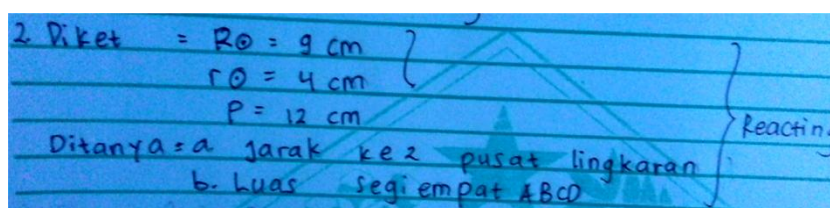 2. Diket = R⊙ = 9 cm
r⊙ = 4 cm
P = 12 cm
Reactin
Ditanya = a jarak ke 2 pusat lingkaran
b. Luas segi empat ABCD